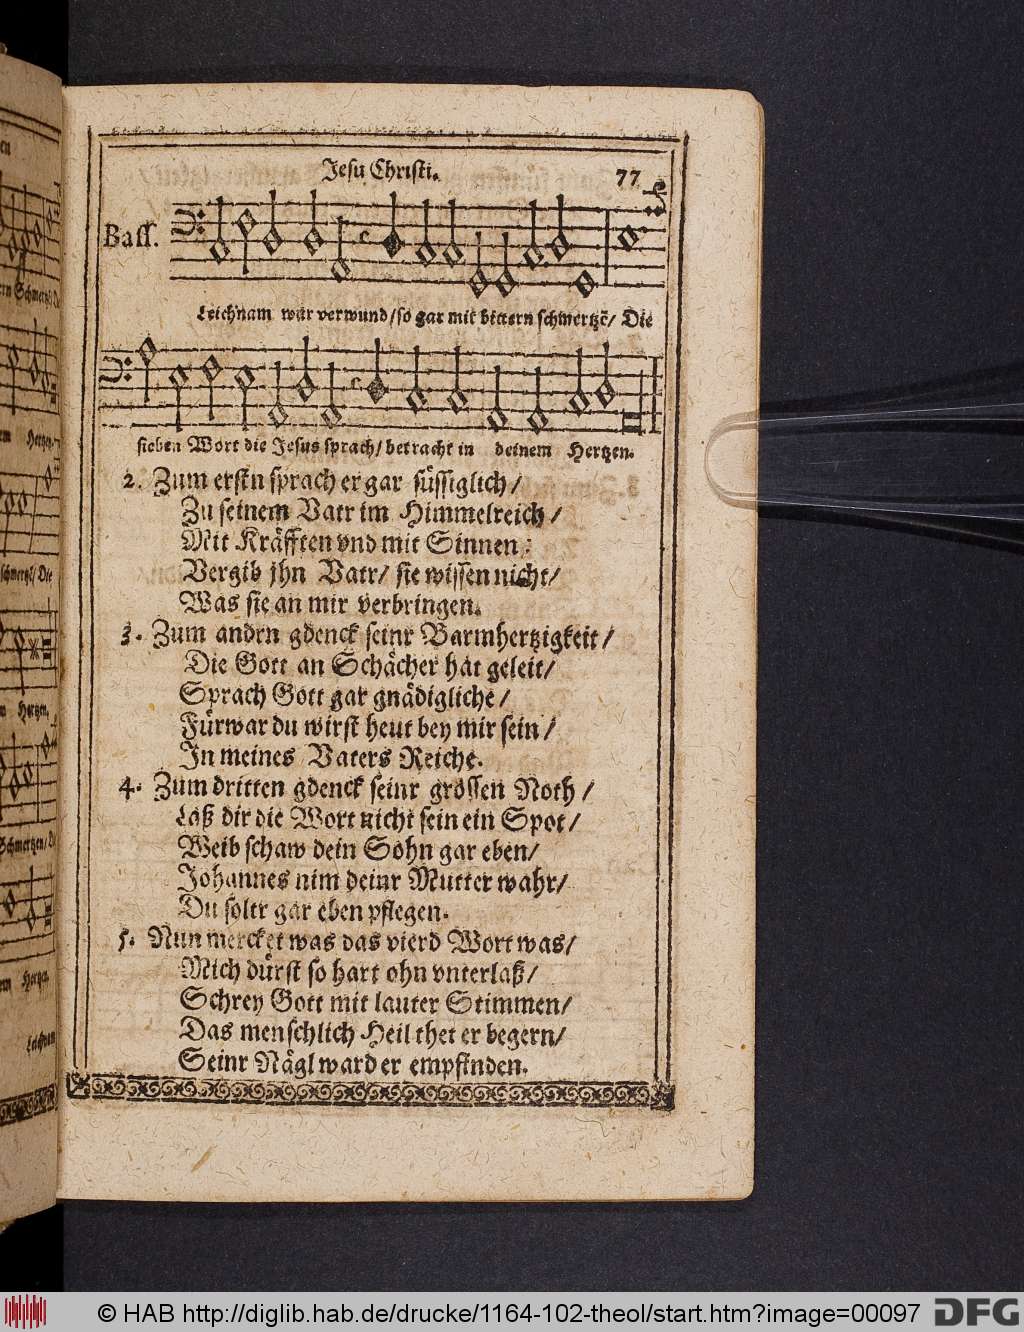 Jesu Christi. 77
Bass.
Leichnam war verwund/so gar mit bittern schmertzẽ/ Die
sieben Wort die Jesus sprach/ betracht in deinem Hertzen.
2. Zum erstn sprach er gar süssiglich/
Zu seinem Vatr im Himmelreich/
Mit Kräfften vnd mit Sinnen:
Vergib jhn Vatr/ sie wissen nicht/
Was sie an mir verbringen.
3. Zum andrn gdenck seinr Barmhertzigkeit/
Die Gott an Schächer hat geleit/
Sprach Gott gar gnädigliche/
Fürwar du wirst heut bey mir sein/
In meines Vaters Reiche.
4. Zum dritten gdenck seinr grossen Noth/
Laß dir die Wort nicht sein ein Spot/
Weib schaw dein Sohn gar eben/
Johannes nim deinr Mutter wahr/
Du soltr gar eben pflegen.
5. Nun mercket was das vierd Wort was/
Mich dürst so hart ohn vnterlaß/
Schrey Gott mit lauter Stimmen/
Das menschlich Heil thet er begern/
Seinr Nägl ward er empfinden.
Hertzen.
schmertzẽ/ Die
Hertzen.
Schmertzen/
Hertzen.
Leichnam
© HAB http://diglib.hab.de/drucke/1164-102-theol/start.htm?image=00097 DFG